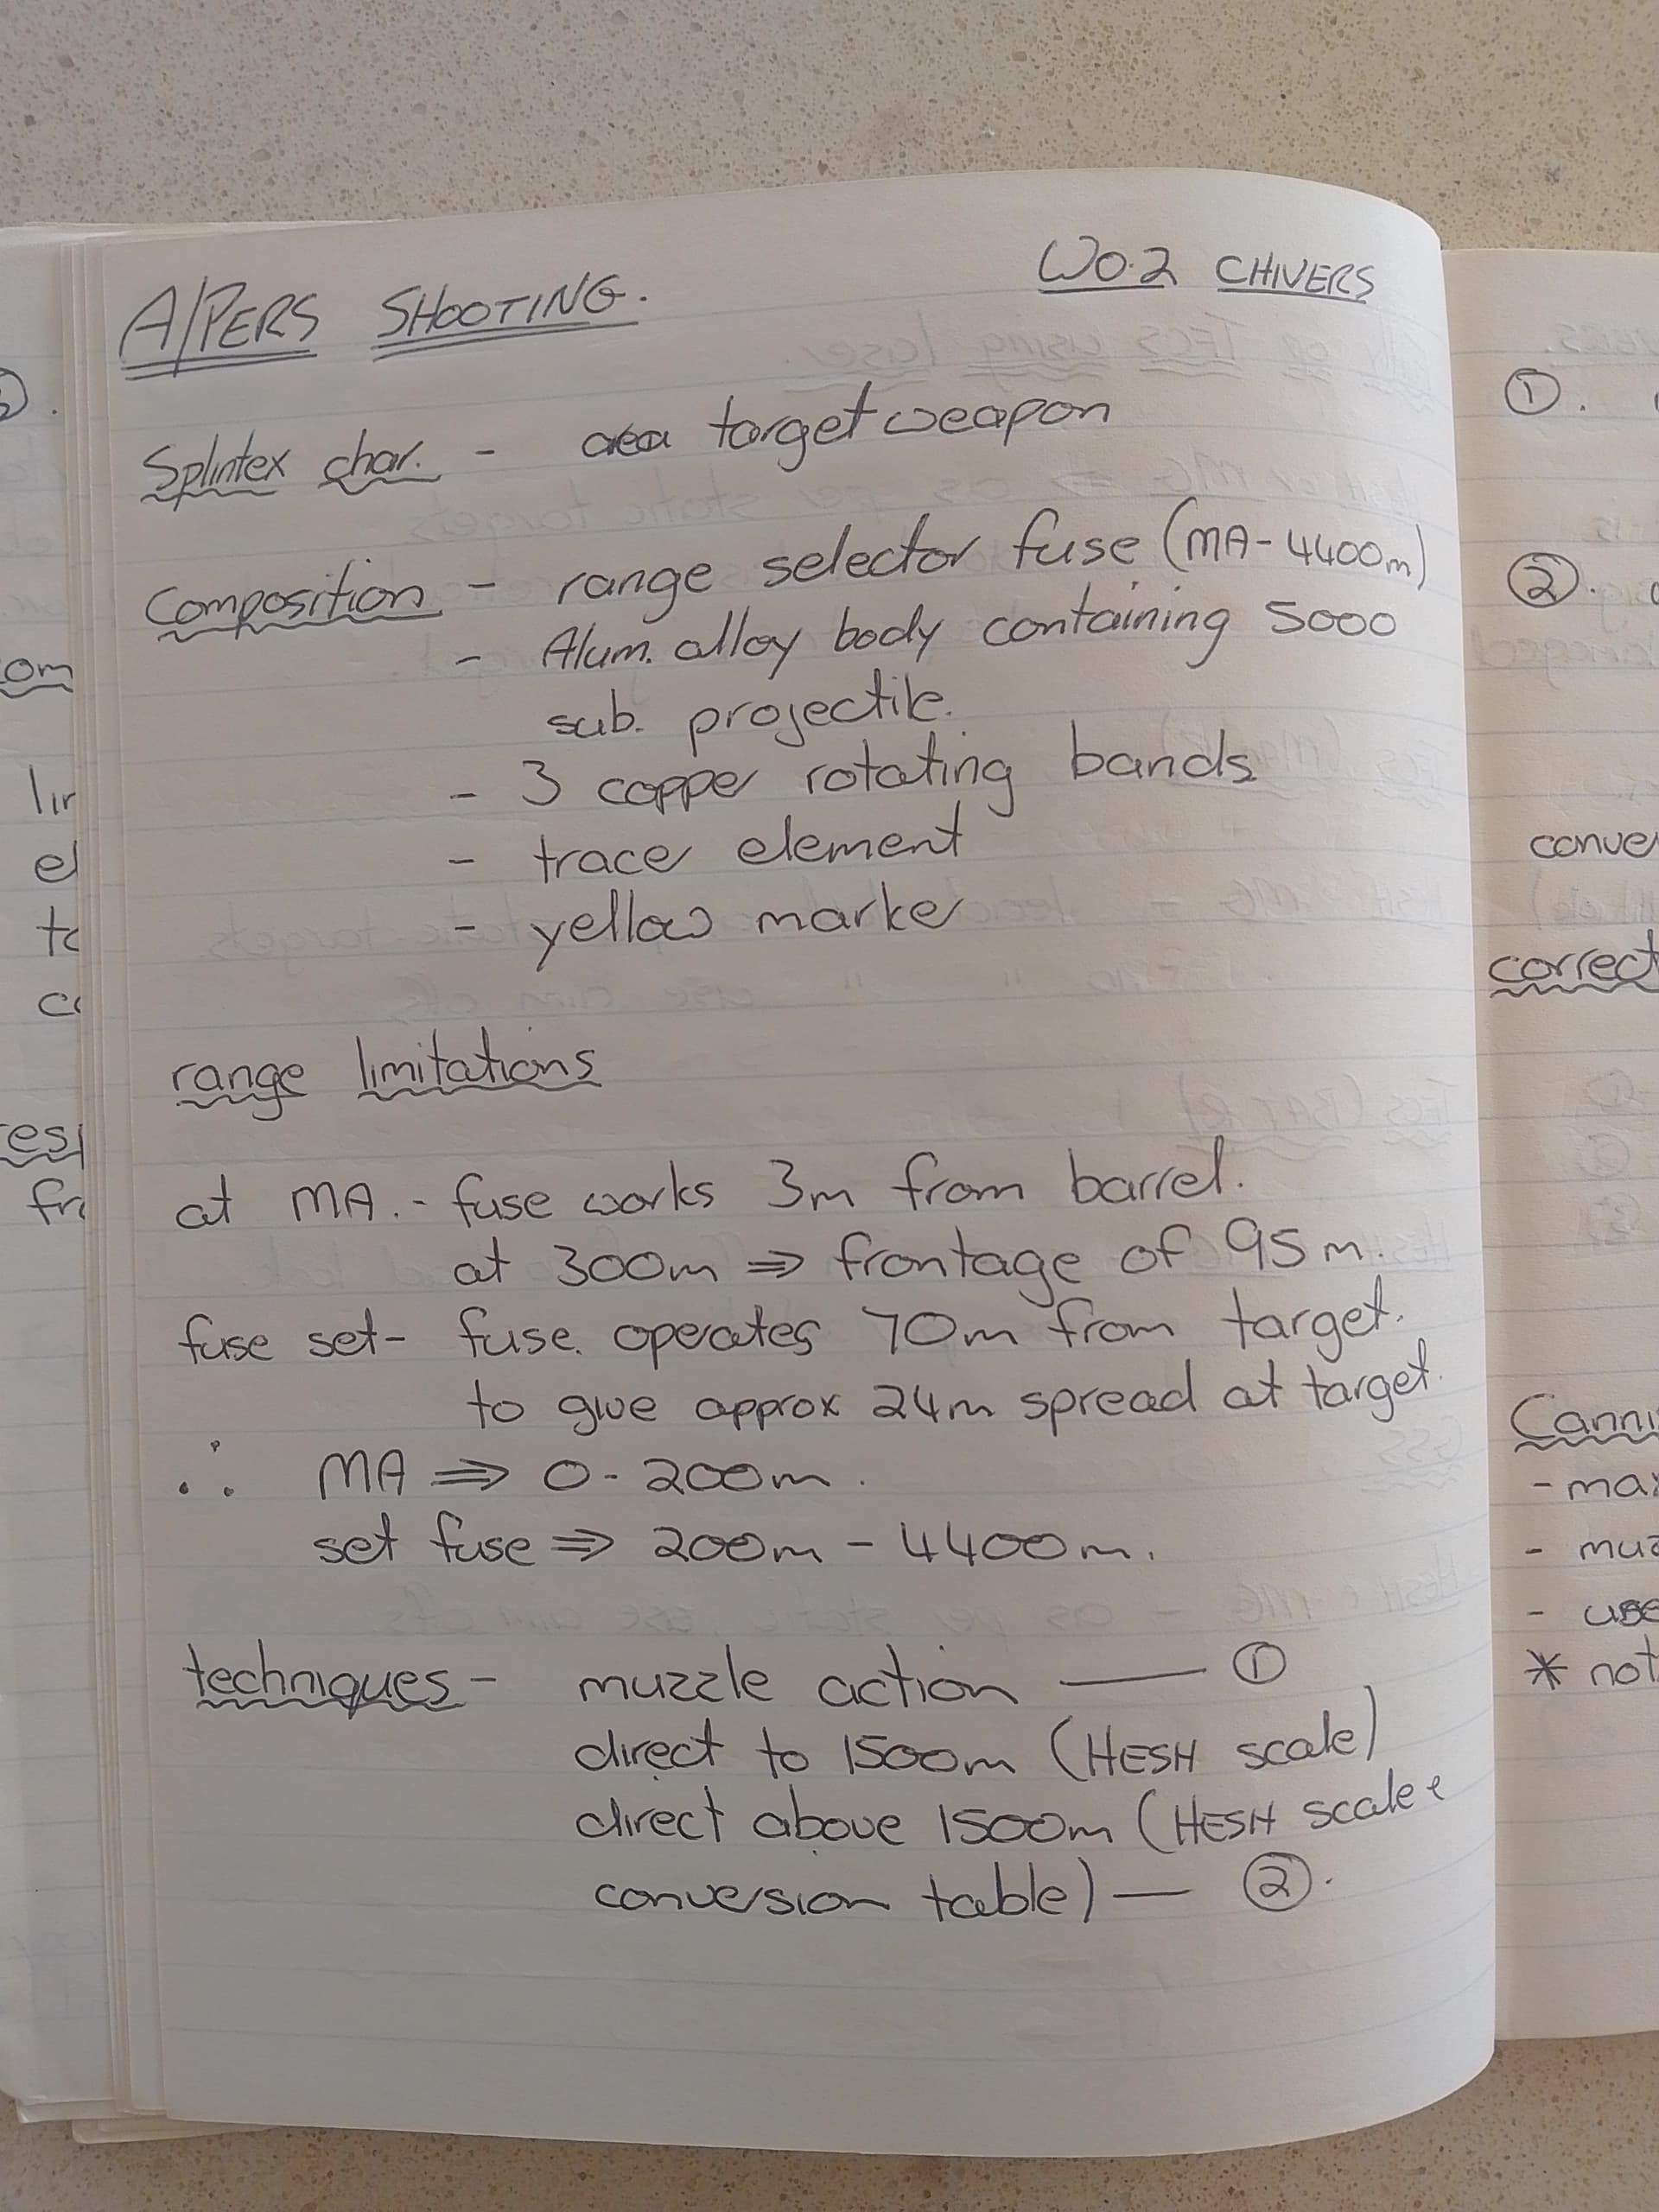 A/PERS SHOOTING. WO.2 CHIVERS
Splintex char. - area target weapon
Composition - range selector fuse (MA-4400m)
- Alum. alloy body containing 5000
sub. projectile.
- 3 copper rotating bands
- tracer element
- yellow marker
range limitations
at MA. - fuse works 3m from barrel.
at 300m ⇒ frontage of 95m.
fuse set - fuse. operates 70m from target.
to give approx 24m spread at target.
∴ MA ⇒ 0-200m.
set fuse ⇒ 200m - 4400m.
techniques - muzzle action — ①
direct to 1500m (HESH scale)
direct above 1500m (HESH scale &
conversion table) — ②.
①.
②.
conver
correct
Canni
- max
- muz
- use
* not